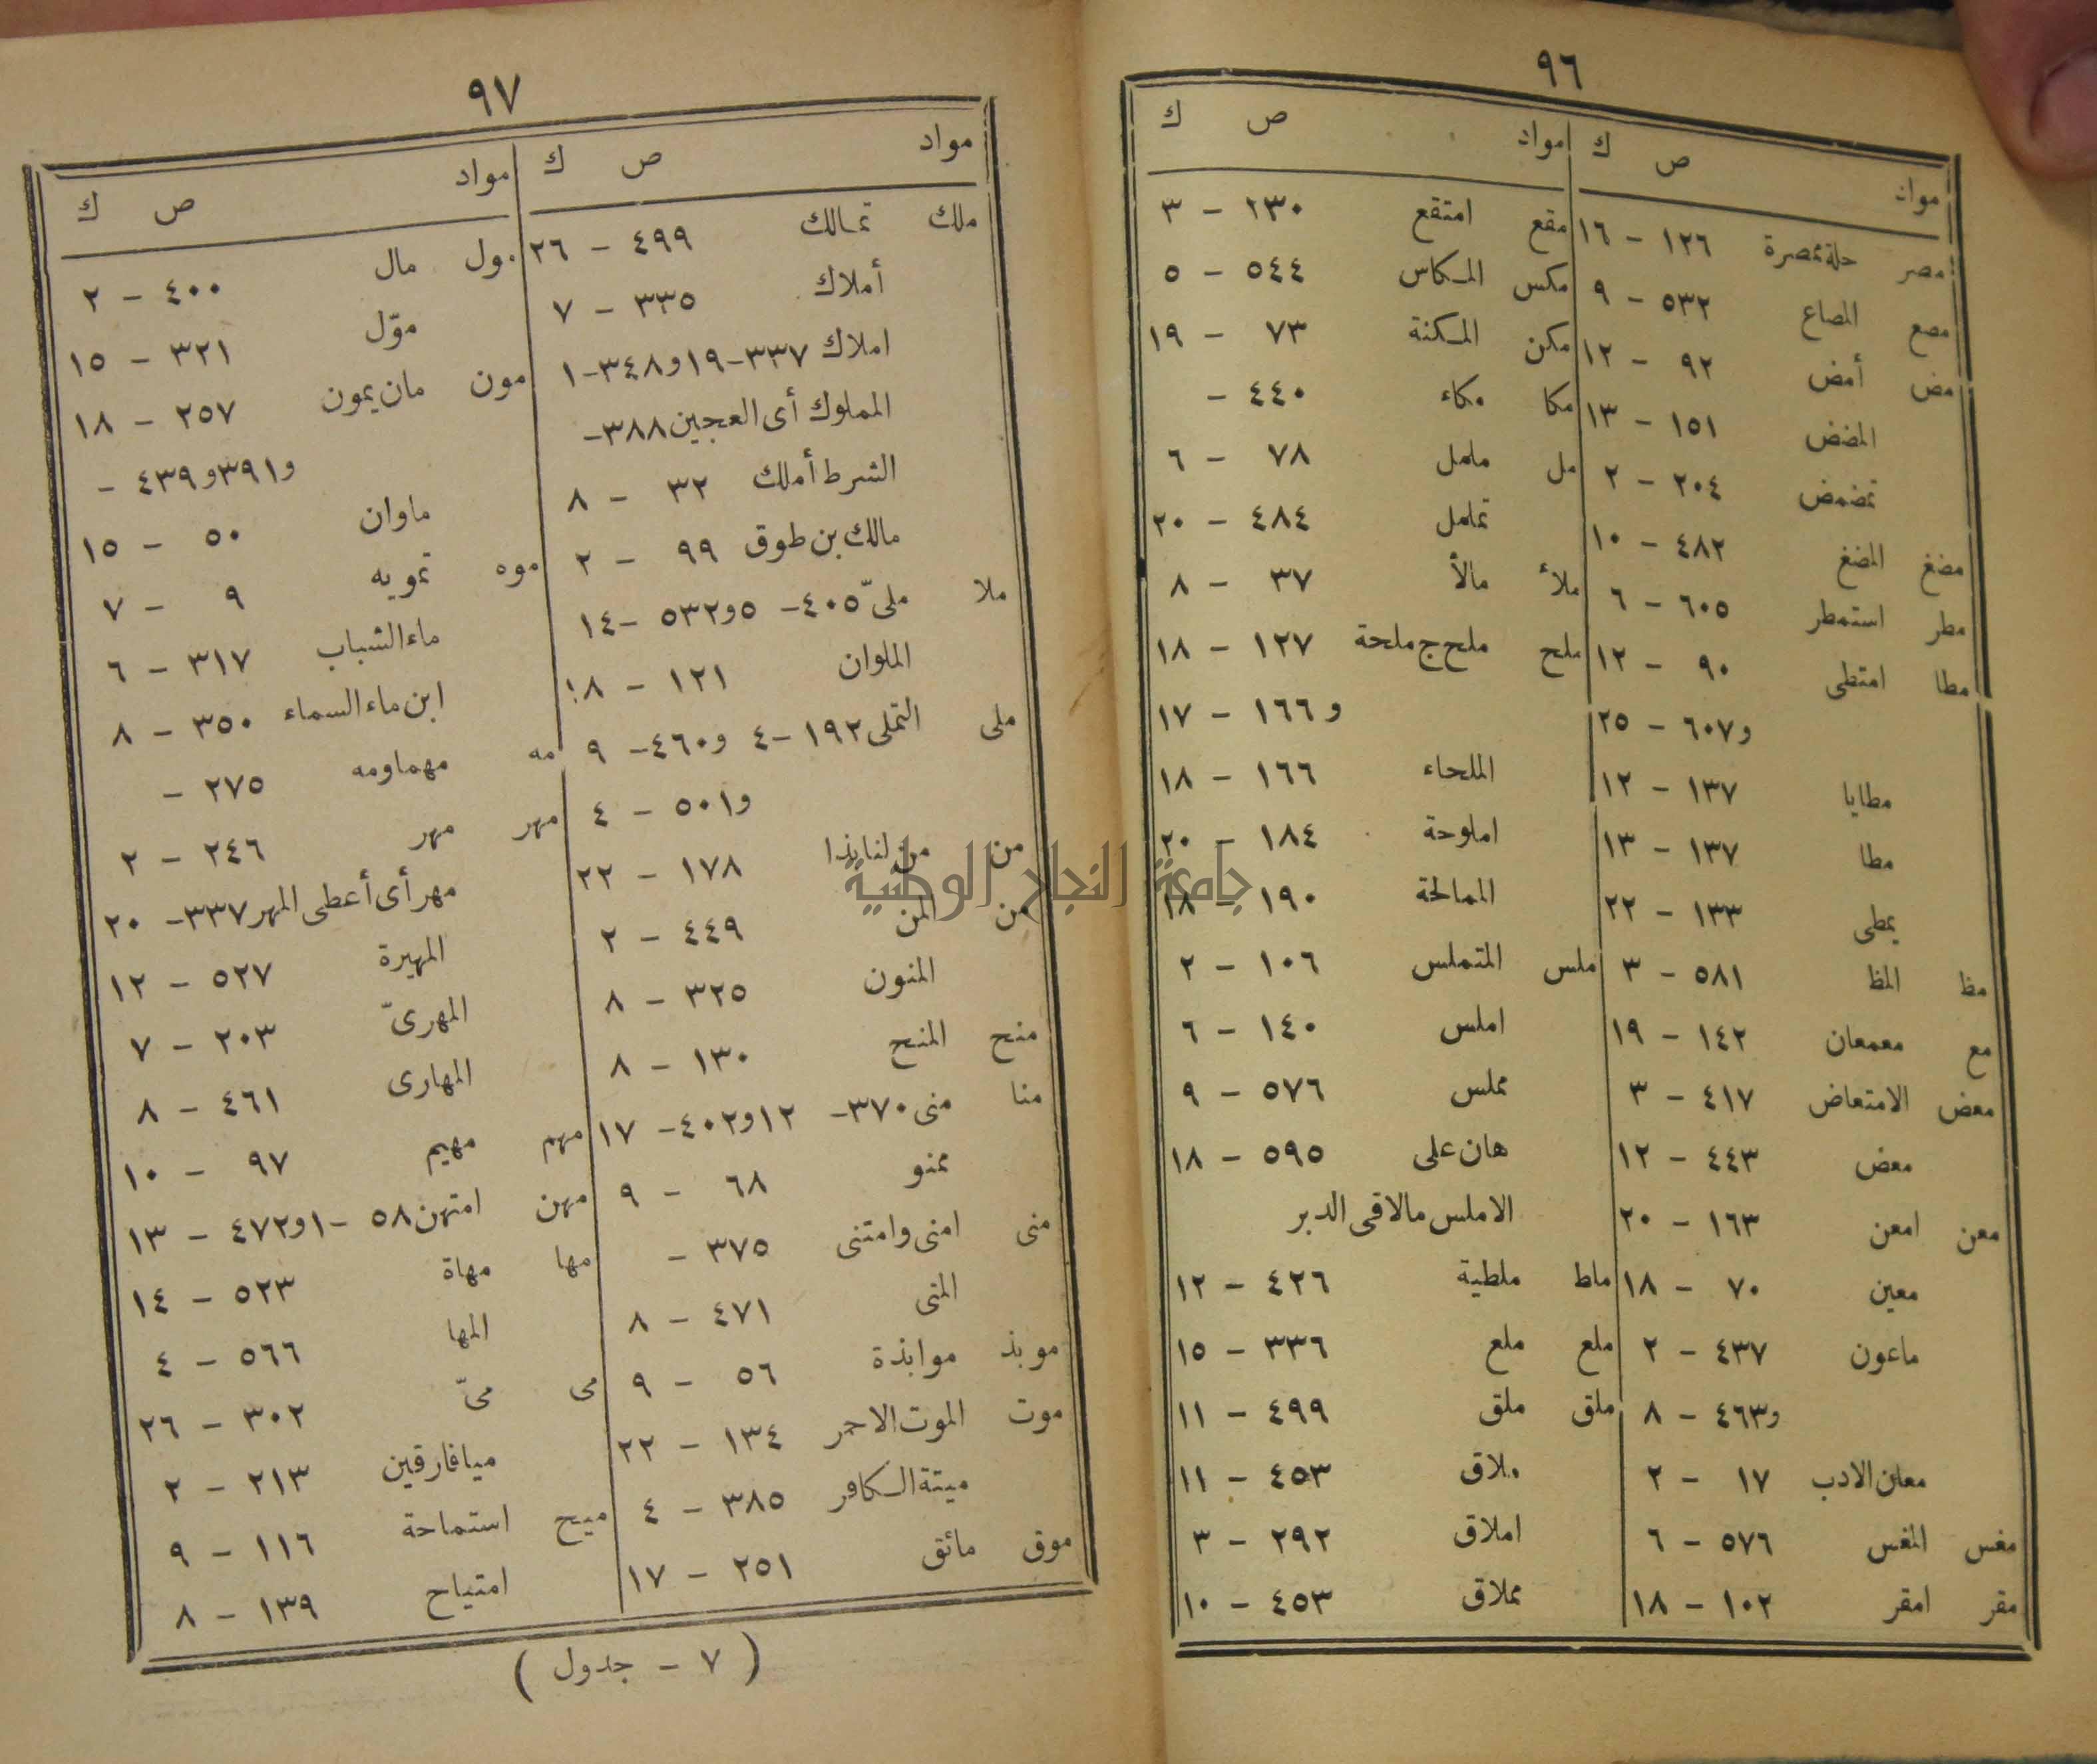 ٩٦
مواد ص ك
مصر حلة ممصرة ١٢٦ - ١٦
مصع المصاع ٥٣٢ - ٩
مض أمض ٩٢ - ١٢
المضض ١٥١ - ١٣
تمضمض ٢٠٤ - ٢
مضغ المضغ ٤٨٢ - ١٠
مطر استمطر ٦٠٥ - ٦
مطا امتطى ٩٠ - ١٢
و٦٠٧ - ٢٥
مطايا ١٣٧ - ١٢
مطا ١٣٧ - ١٣
يمطى ١٣٣ - ٢٢
مظ المظ ٥٨١ - ٣
مع معمعان ١٤٢ - ١٩
معض الامتعاض ٤١٧ - ٣
معض ٤٤٣ - ١٢
معن امعن ١٦٣ - ٢٠
معين ٧٠ - ١٨
ماعون ٤٣٧ - ٢
و٤٦٣ - ٨
معان الادب ١٧ - ٢
مغس المغس ٥٧٦ - ٦
مقر امقر ١٠٢ - ١٨
مواد ص ك
مقع امتقع ٢٣٠ - ٣
مكس المكاس ٥٤٤ - ٥
مكن المكنة ٧٣ - ١٩
مكا مكاء ٤٤٠ -
مل ململ ٧٨ - ٦
تململ ٤٨٤ - ٢٠
ملأ مالأ ٣٧ - ٨
ملح ملح ج ملحة ١٢٧ - ١٨
و ١٦٦ - ١٧
الملحاء ١٦٦ - ١٨
املوحة ١٨٤ - ٢٠
الممالحة ١٩٠ - ١٨
ملس المتملس ١٠٦ - ٢
املس ١٤٠ - ٦
مملس ٥٧٦ - ٩
هان على ٥٩٥ - ١٨
الاملس مالاقى الدبر
ملط ملطية ٤٢٦ - ١٢
ملع ملع ٣٣٦ - ١٥
ملق ملق ٤٩٩ - ١١
ملاق ٤٥٣ - ١١
املاق ٢٩٢ - ٣
مملاق ٤٥٣ - ١٠
٩٧
مواد ص ك
ملك تمالك ٤٩٩ - ٢٦
أملاك ٣٣٥ - ٧
املاك ٣٣٧-١٩و٣٤٨-١
المملوك أى العجين ٣٨٨-
الشرط أملك ٣٢ - ٨
مالك بن طوق ٩٩ - ٢
ملا ملىّ ٤٠٥- ٥و٥٣٢ -١٤
الملوان ١٢١ - ١٨
ملى التملى ١٩٢ -٤ و٤٦٠- ٩
و٥٠١ - ٤
من من لنا بذا ١٧٨ - ٢٢
من المن ٤٤٩ - ٢
المنون ٣٢٥ - ٨
منح المنح ١٣٠ - ٨
منا منى ٣٧٠- ١٢و٤٠٢- ١٧
ممنو ٦٨ - ٩
منى امنى وامتنى ٣٧٥ -
المنى ٤٧١ - ٨
موبذ موابذة ٥٦ - ٩
موت الموت الاحمر ١٣٤ - ٢٢
ميتة الكافر ٣٨٥ - ٤
موق مائق ٢٥١ - ١٧
مواد ص ك
مول مال ٤٠٠ - ٢
موّل ٣٢١ - ١٥
مون مان يمون ٢٥٧ - ١٨
و٣٩١و٤٣٩ -
ماوان ٥٠ - ١٥
موه تمويه ٩ - ٧
ماء الشباب ٣١٧ - ٦
ابن ماء السماء ٣٥٠ - ٨
مه مهما ومه ٢٧٥ -
مهر مهر ٢٤٦ - ٢
مهر أى أعطى المهر ٣٣٧- ٢٠
المهيرة ٥٢٧ - ١٢
المهرىّ ٢٠٣ - ٧
المهارى ٤٦١ - ٨
مهم مهيم ٩٧ - ١٠
مهن امتهن ٥٨ -١و٤٧٢ - ١٣
مها مهاة ٥٢٣ - ١٤
المها ٥٦٦ - ٤
مى مىّ ٣٠٢ - ٢٦
ميافارقين ٢١٣ - ٢
ميح استماحة ١١٦ - ٩
امتياح ١٣٩ - ٨
( ٧ - جدول )
جامعة النجاح الوطنية